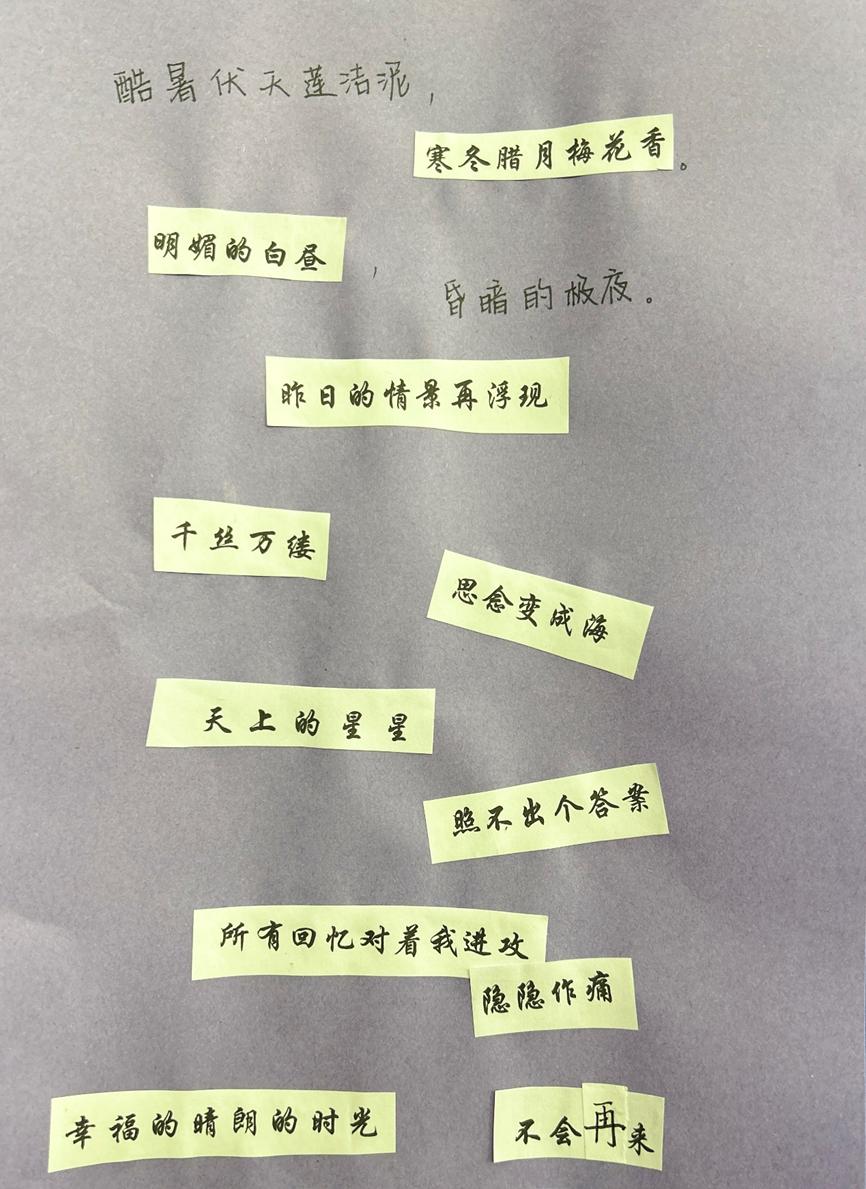 酷暑伏天莲洁泥，
寒冬腊月梅花香。
明媚的白昼，
昏暗的极夜。
昨日的情景再浮现
千丝万缕
思念变成海
天上的星星
照不出个答案
所有回忆对着我进攻
隐隐作痛
幸福的晴朗的时光
不会再来